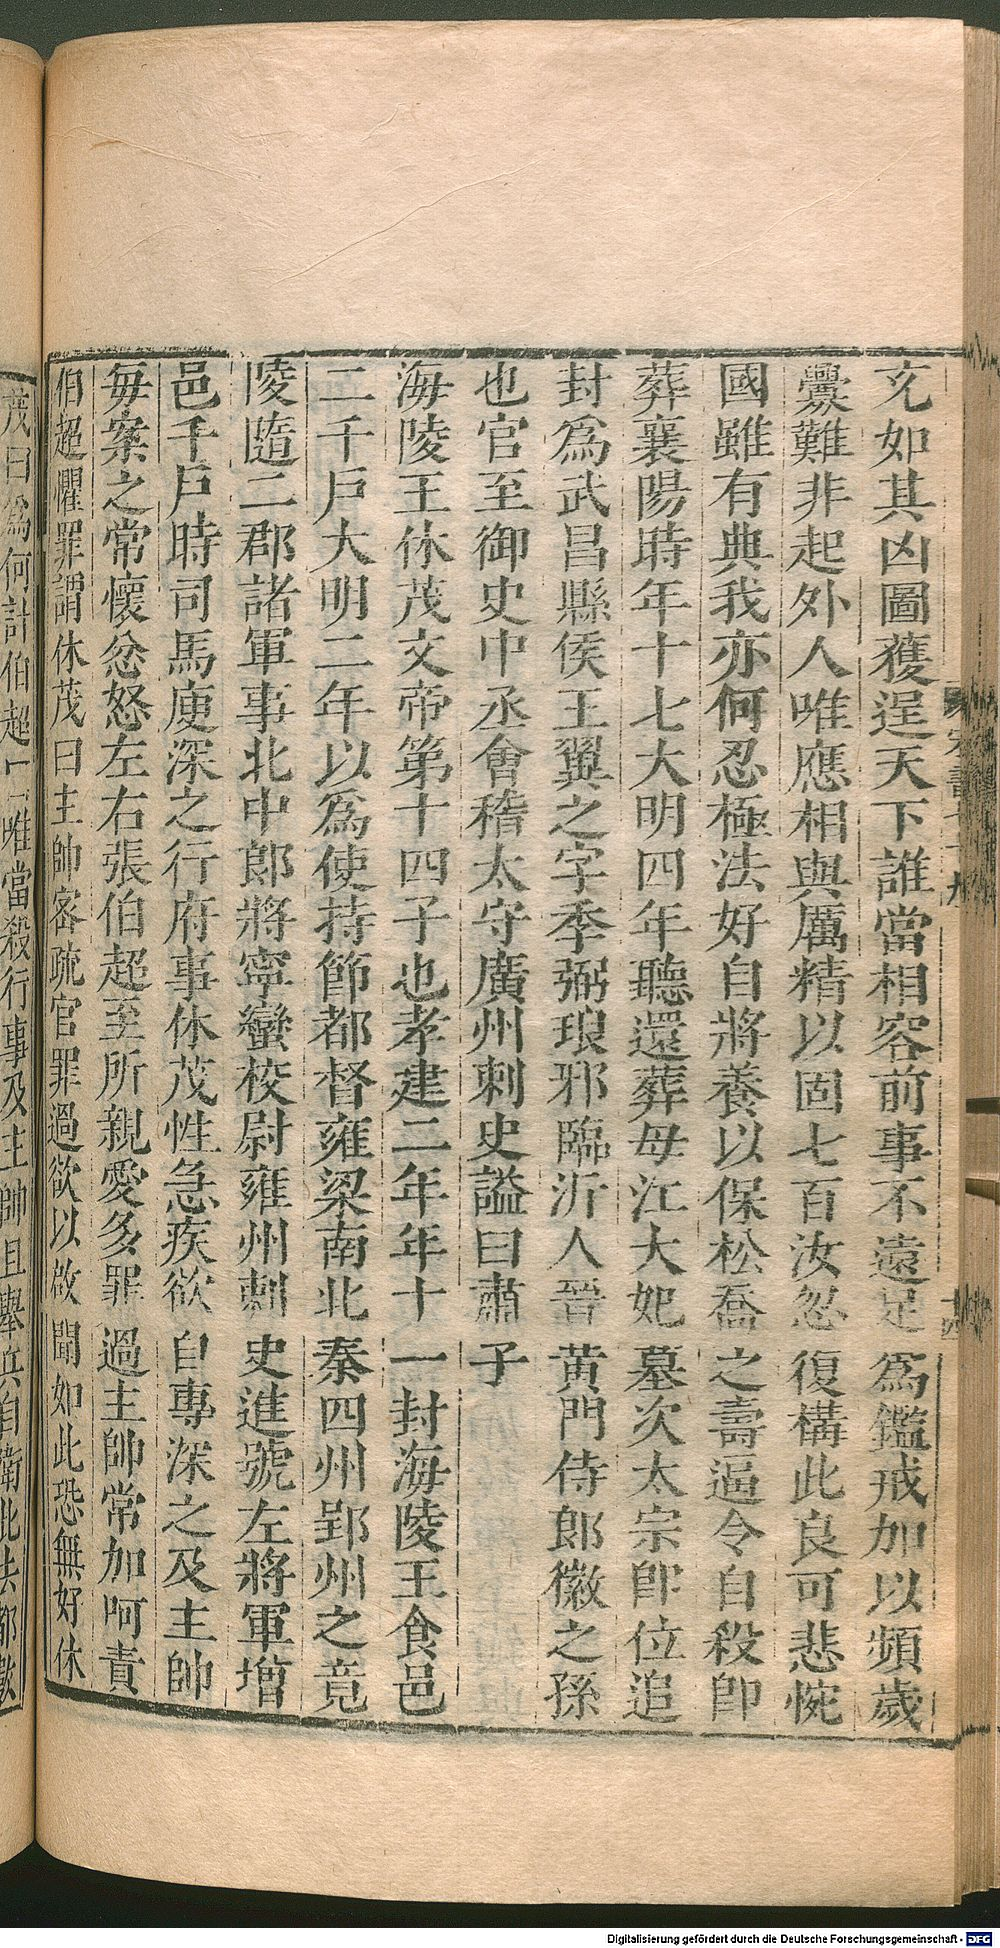 宄如其凶圖獲逞天下誰當相容前事不遠足爲鑑戒加以頻歲
釁難非起外人唯應相與厲精以固七百汝忽復構此良可悲惋
國雖有典我亦何忍極法好自將養以保松喬之壽逼令自殺卽
葬襄陽時年十七大明四年聽還葬母江大妃墓次太宗卽位追
封爲武昌縣侯王翼之字季弼琅邪臨沂人晉黄門侍郎徽之孫
也官至御史中丞會稽太守廣州刺史謚曰肅子
海陵王休茂文帝第十四子也孝建二年年十一封海陵王食邑
二千戶大明二年以爲使持節都督雍梁南北秦四州郢州之竟
陵隨二郡諸軍事北中郎將寧蠻校尉雍州刺史進號左將軍增
邑千戶時司馬庾深之行府事休茂性急疾欲自專深之及主帥
每案之常懷忿怒左右張伯超至所親愛多罪過主帥常加呵責
伯超懼罪謂休茂曰主帥密疏官罪過欲以啟聞如此恐無好休
茂曰爲何計伯超曰唯當殺行事及主帥且舉兵自衛此去都數
Digitalisierung gefördert durch die Deutsche Forschungsgemeinschaft - DFG